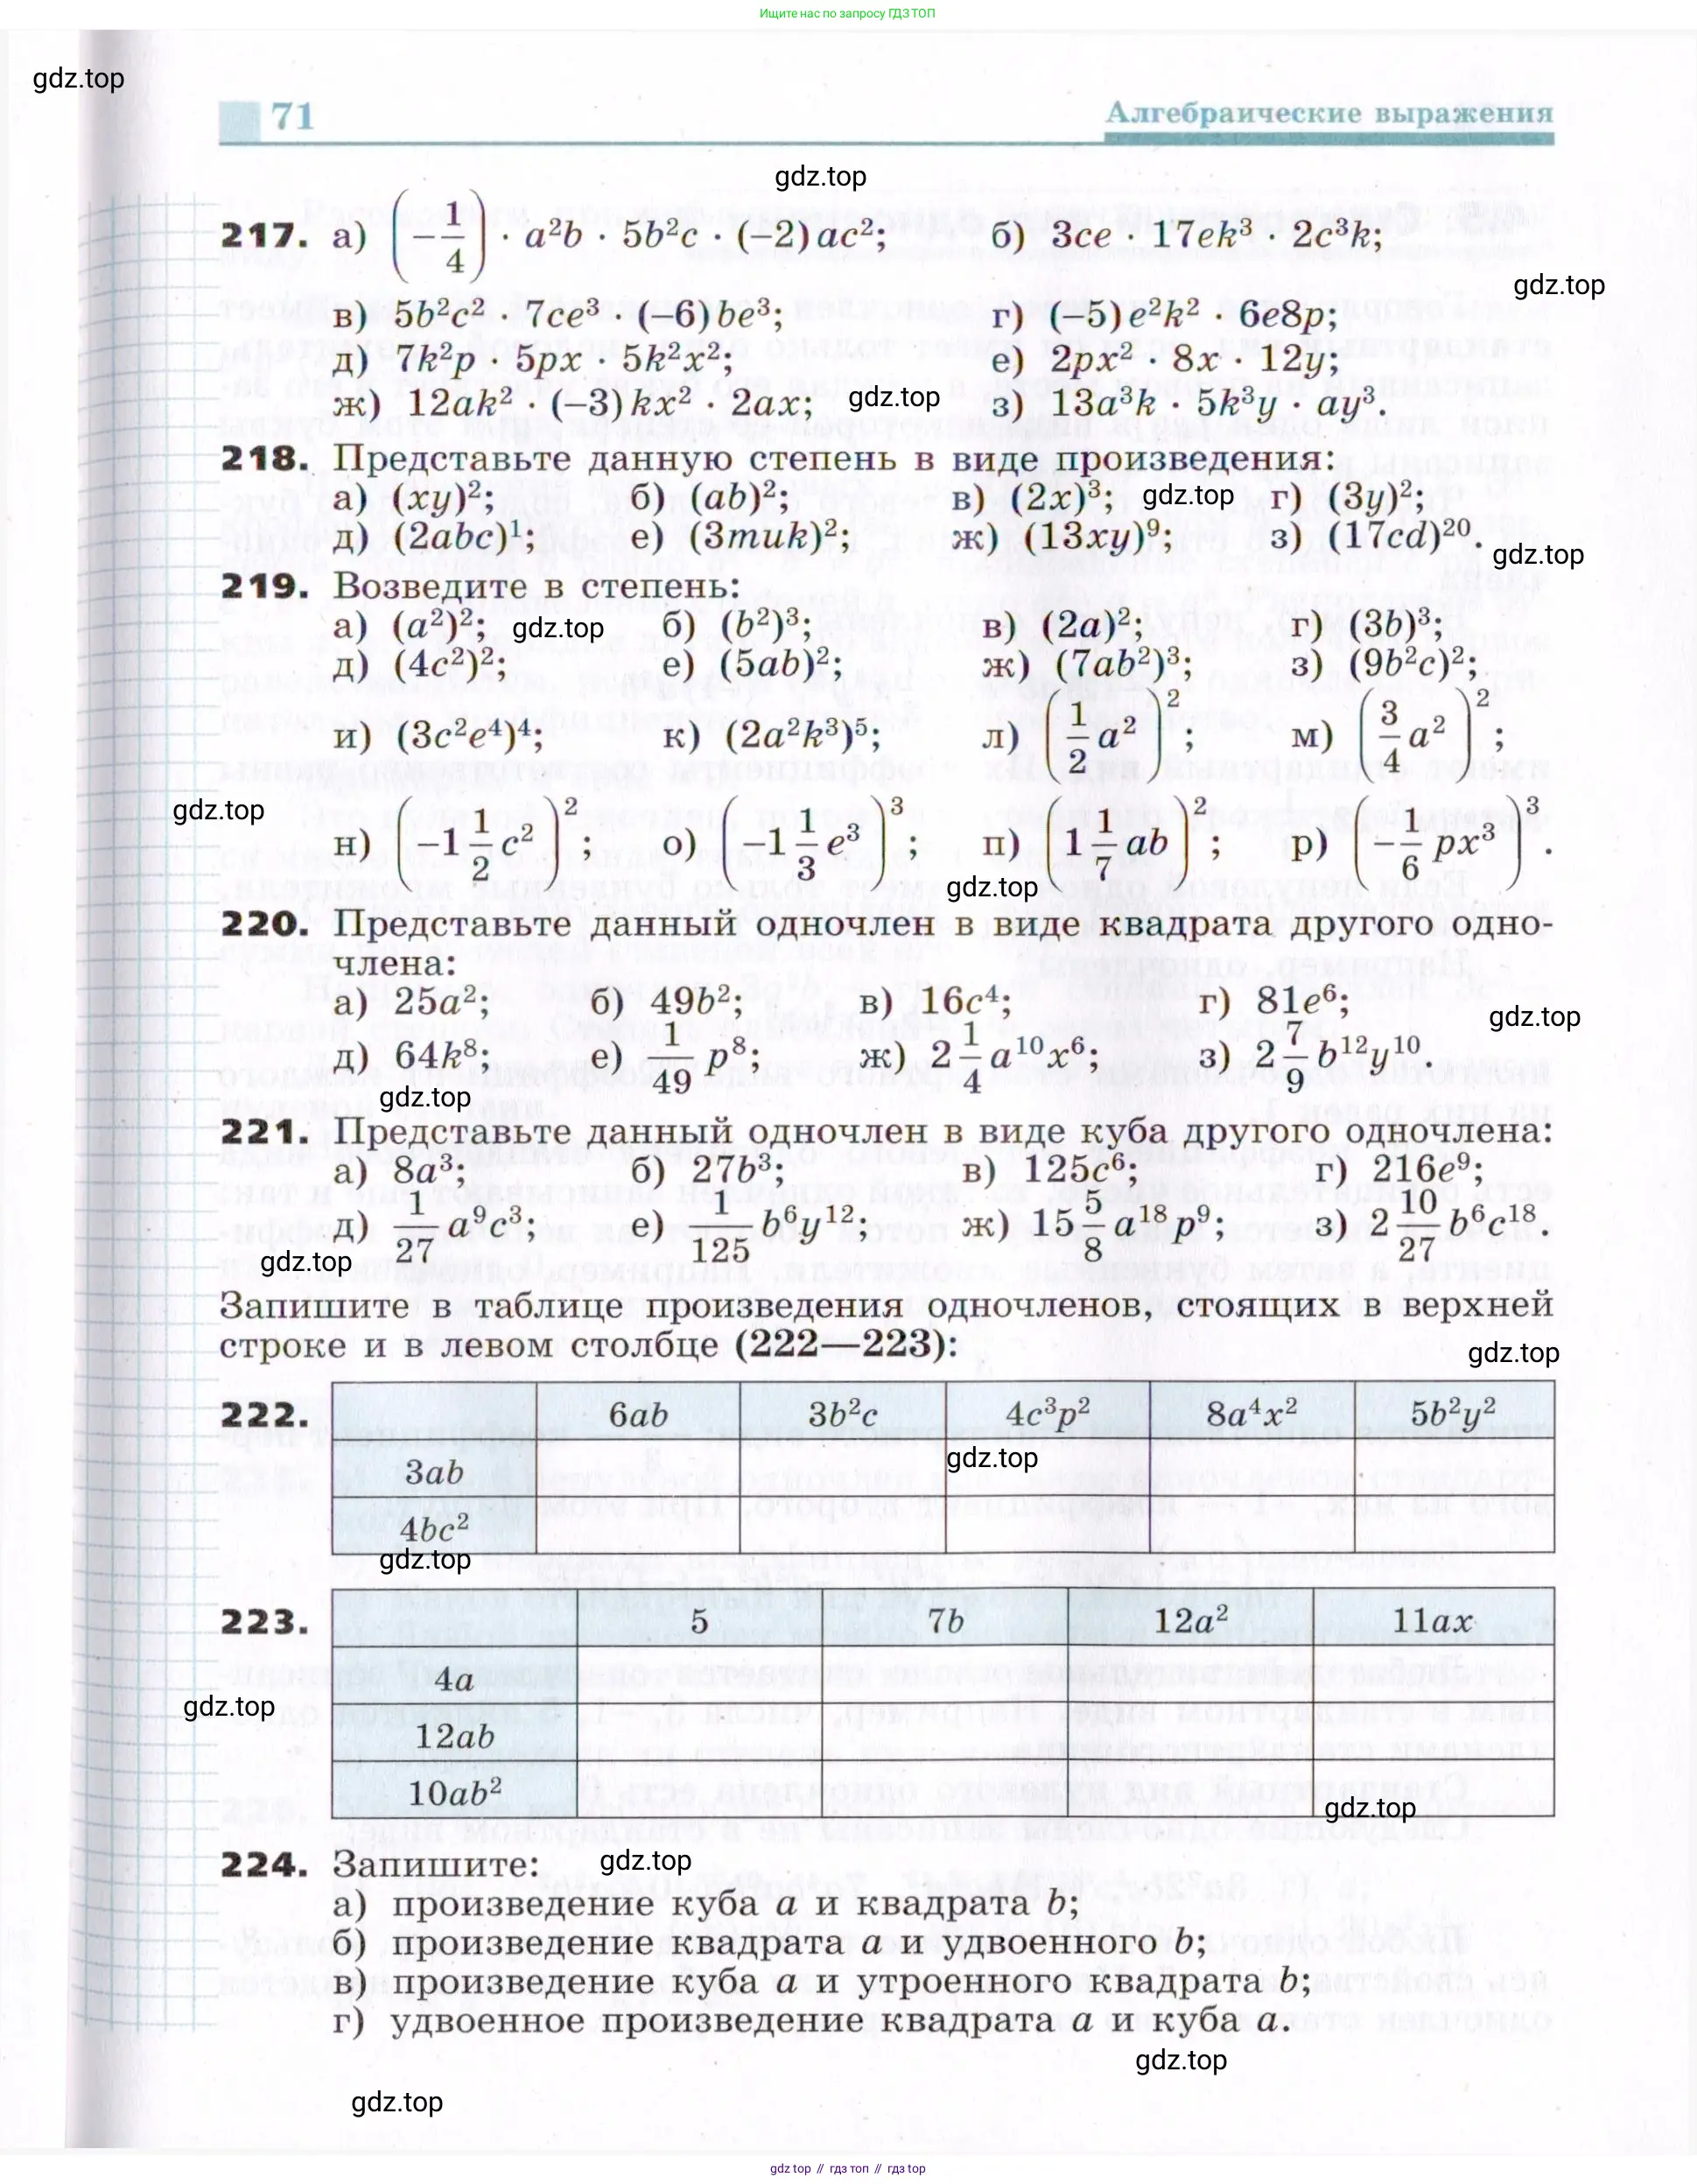 Ищите нас по запросу ГДЗ ТОП
gdz.top
71 Алгебраические выражения
gdz.top
217. а) (−1/4) · a²b · 5b²c · (−2)ac²; б) 3ce · 17ek³ · 2c³k;
gdz.top
в) 5b²c² · 7ce³ · (−6)be³; г) (−5)e²k² · 6e8p;
д) 7k²p · 5px · 5k²x²; е) 2px² · 8x · 12y;
ж) 12ak² · (−3)kx² · 2ax; gdz.top з) 13a³k · 5k³y · ay³.
218. Представьте данную степень в виде произведения:
а) (xy)²; б) (ab)²; в) (2x)³; gdz.top г) (3y)²;
д) (2abc)¹; е) (3muk)²; ж) (13xy)⁹; з) (17cd)²⁰.
gdz.top
219. Возведите в степень:
а) (a²)²; gdz.top б) (b²)³; в) (2a)²; г) (3b)³;
д) (4c²)²; е) (5ab)²; ж) (7ab²)³; з) (9b²c)²;
и) (3c²e⁴)⁴; к) (2a²k³)⁵; л) (1/2 a²)²; м) (3/4 a²)²;
gdz.top
н) (−1 1/2 c²)²; о) (−1 1/3 e³)³; п) (1 1/7 ab)²; р) (−1/6 px³)³.
gdz.top
220. Представьте данный одночлен в виде квадрата другого одно-
члена:
а) 25a²; б) 49b²; в) 16c⁴; г) 81e⁶;
gdz.top
д) 64k⁸; е) 1/49 p⁸; ж) 2 1/4 a¹⁰x⁶; з) 2 7/9 b¹²y¹⁰.
gdz.top
221. Представьте данный одночлен в виде куба другого одночлена:
а) 8a³; б) 27b³; в) 125c⁶; г) 216e⁹;
д) 1/27 a⁹c³; е) 1/125 b⁶y¹²; ж) 15 5/8 a¹⁸p⁹; з) 2 10/27 b⁶c¹⁸.
gdz.top
Запишите в таблице произведения одночленов, стоящих в верхней
строке и в левом столбце (222—223):
gdz.top
222. 6ab 3b²c 4c³p² 8a⁴x² 5b²y²
gdz.top
3ab
4bc²
gdz.top
223. 5 7b 12a² 11ax
4a
gdz.top
12ab
10ab²
gdz.top
224. Запишите: gdz.top
а) произведение куба a и квадрата b;
б) произведение квадрата a и удвоенного b;
в) произведение куба a и утроенного квадрата b;
г) удвоенное произведение квадрата a и куба a.
gdz.top
gdz.top
gdz top // гдз топ // гдз top